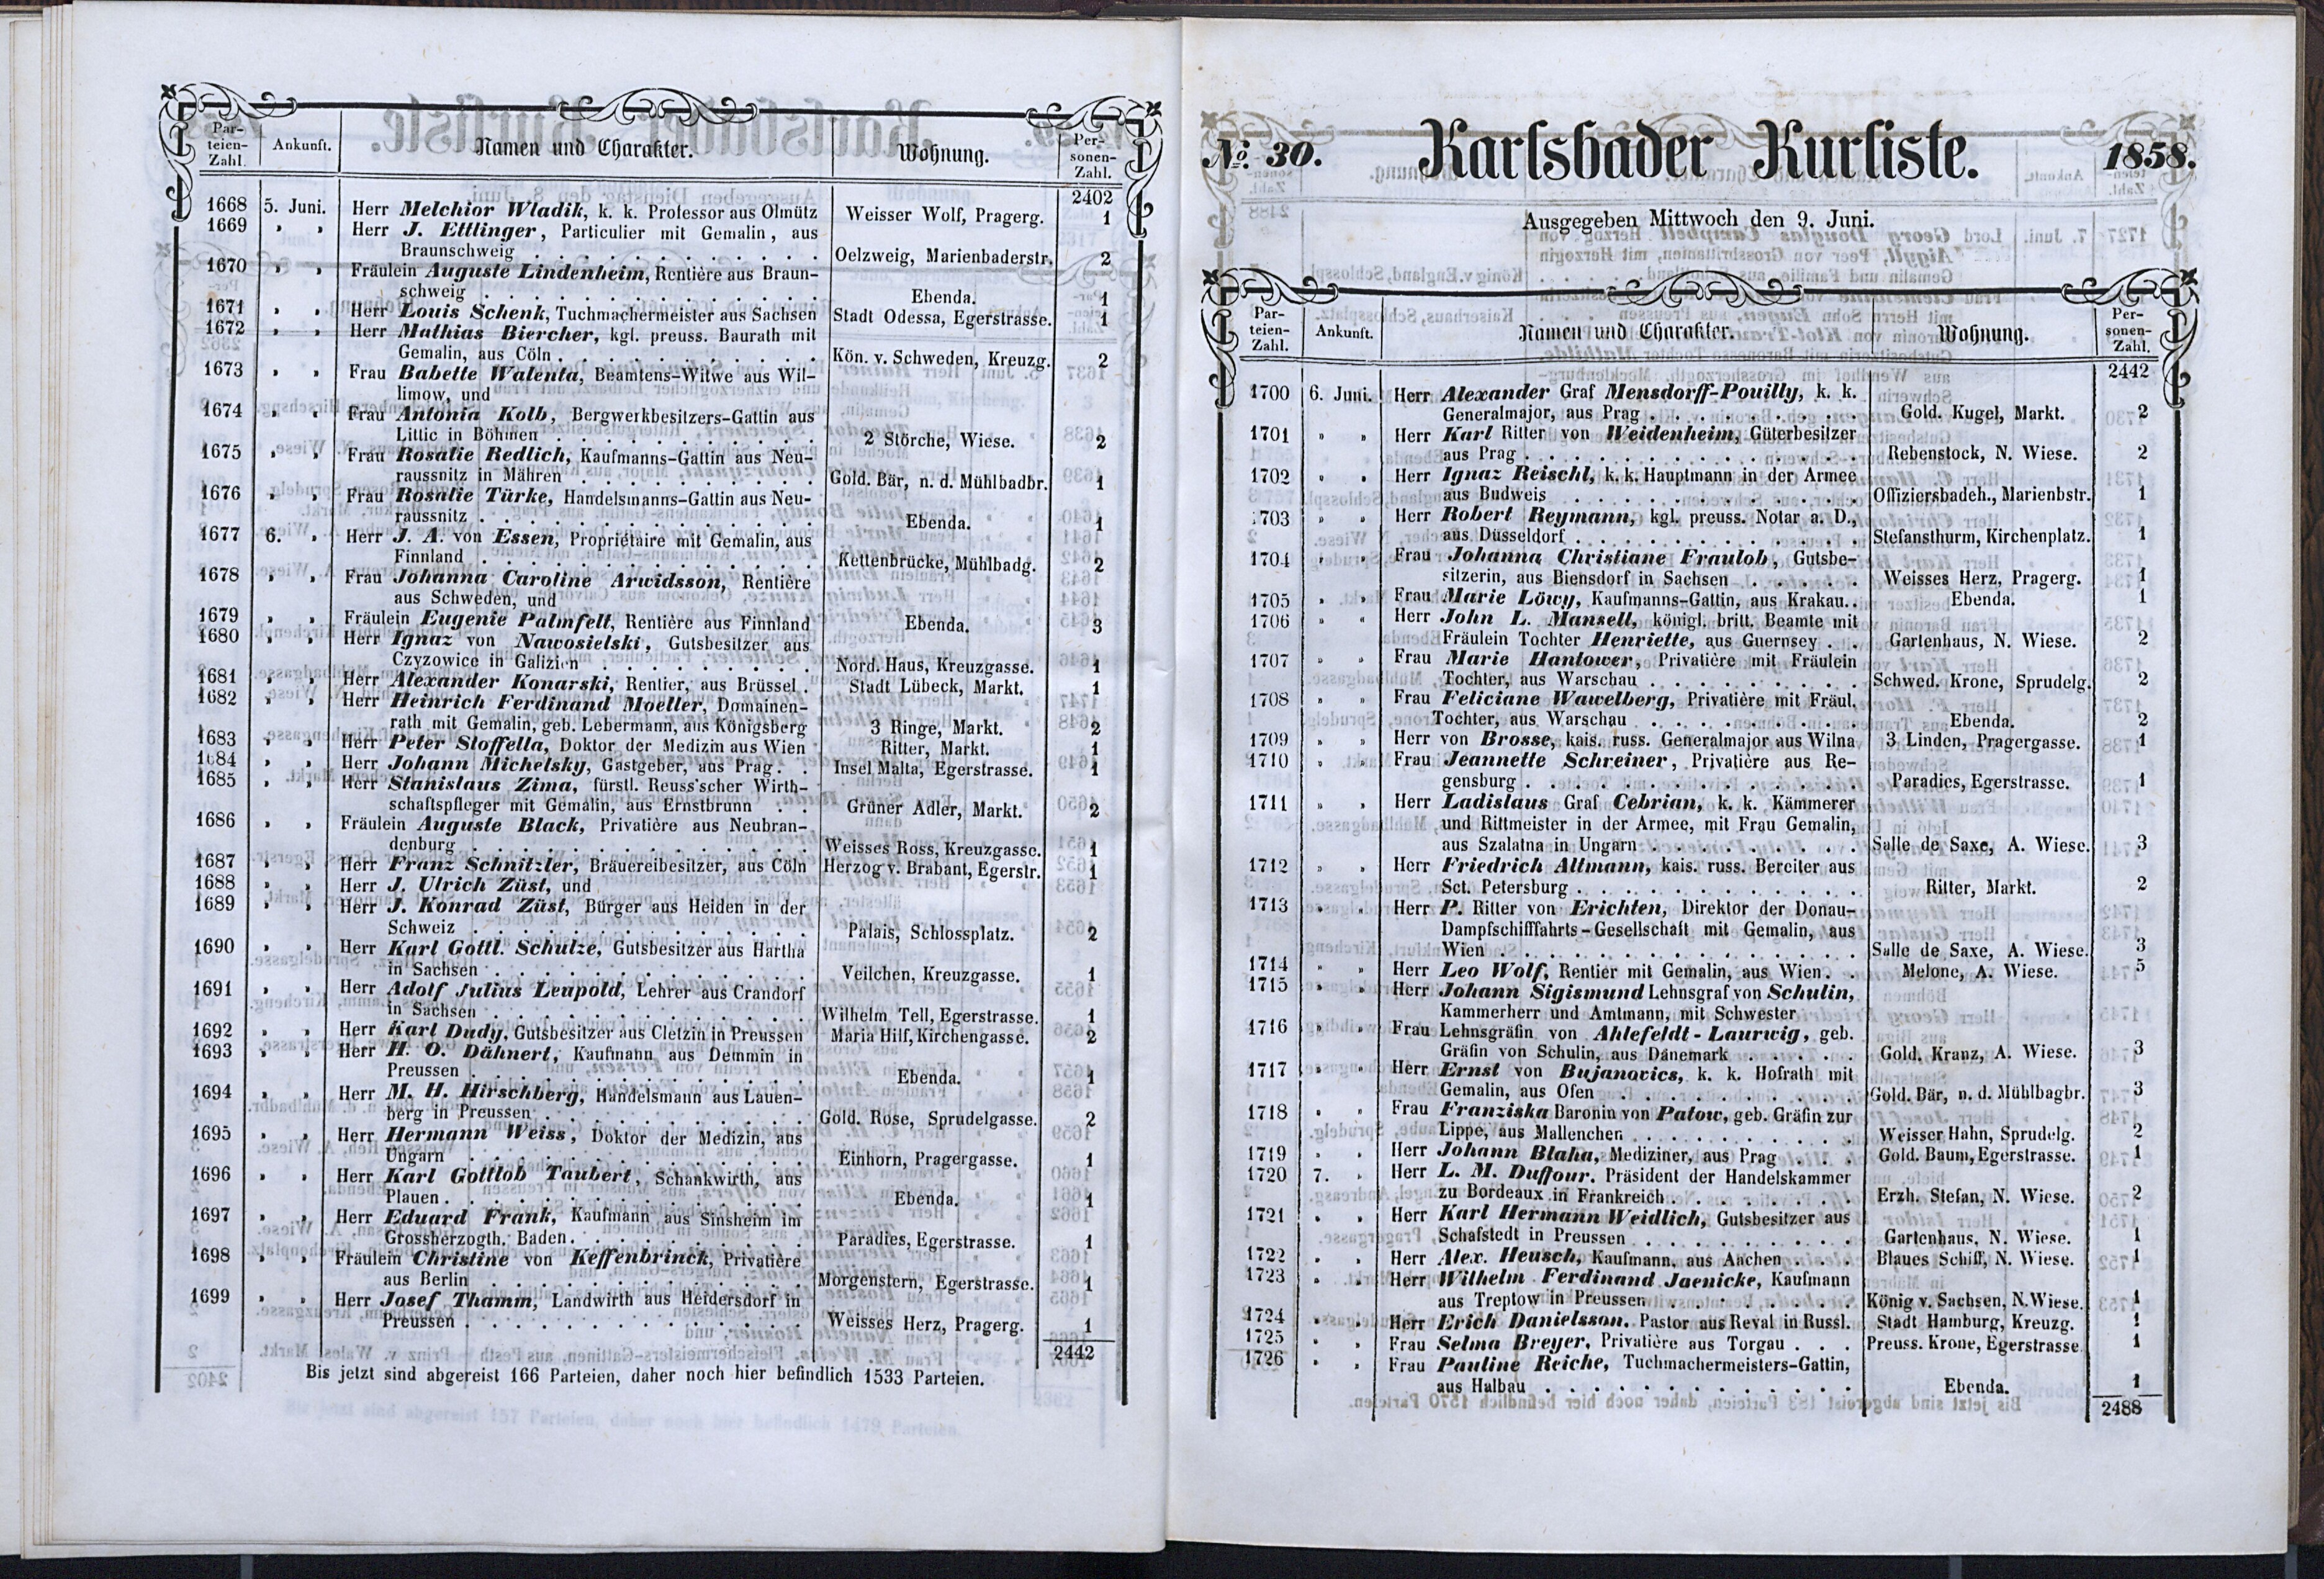 Par-
teien-
Zahl. Ankunft. Namen und Charakter. Wohnung. Per-
sonen-
Zahl.
2402
1668 5. Juni. Herr Melchior Wladik, k. k. Professor aus Olmütz Weisser Wolf, Pragerg. 1
1669 „ „ Herr J. Ettlinger, Particulier mit Gemalin, aus
Braunschweig . . . . . . . . . . . Oelzweig, Marienbaderstr. 2
1670 „ „ Fräulein Auguste Lindenheim, Rentière aus Braun-
schweig . . . . . . . . . . . . . Ebenda. 1
1671 „ „ Herr Louis Schenk, Tuchmachermeister aus Sachsen Stadt Odessa, Egerstrasse. 1
1672 „ „ Herr Mathias Biercher, kgl. preuss. Baurath mit
Gemalin, aus Cöln . . . . . . . . . . Kön. v. Schweden, Kreuzg. 2
1673 „ „ Frau Babette Walenta, Beamtens-Witwe aus Wil-
limow, und
1674 „ „ Frau Antonia Kolb, Bergwerkbesitzers-Gattin aus
Littic in Böhmen . . . . . . . . . . 2 Störche, Wiese. 2
1675 „ „ Frau Rosalie Redlich, Kaufmanns-Gattin aus Neu-
raussnitz in Mähren . . . . . . . . . Gold. Bär, n. d. Mühlbadbr. 1
1676 „ „ Frau Rosalie Türke, Handelsmanns-Gattin aus Neu-
raussnitz . . . . . . . . . . . . . Ebenda. 1
1677 6. „ Herr J. A. von Essen, Propriétaire mit Gemalin, aus
Finnland . . . . . . . . . . . . . Kettenbrücke, Mühlbadg. 2
1678 „ „ Frau Johanna Caroline Arwidsson, Rentière
aus Schweden, und
1679 „ „ Fräulein Eugenie Palmfelt, Rentière aus Finnland Ebenda. 3
1680 „ „ Herr Ignaz von Nawosielski, Gutsbesitzer aus
Czyzowice in Galizien . . . . . . . . . Nord. Haus, Kreuzgasse. 1
1681 „ „ Herr Alexander Konarski, Rentier, aus Brüssel . Stadt Lübeck, Markt. 1
1682 „ „ Herr Heinrich Ferdinand Moeller, Domainen-
rath mit Gemalin, geb. Lebermann, aus Königsberg 3 Ringe, Markt. 2
1683 „ „ Herr Peter Stoffella, Doktor der Medizin aus Wien Ritter, Markt. 1
1684 „ „ Herr Johann Michelsky, Gastgeber, aus Prag. . Insel Malta, Egerstrasse. 1
1685 „ „ Herr Stanislaus Zima, fürstl. Reuss'scher Wirth-
schaftspfleger mit Gemalin, aus Ernstbrunn . . Grüner Adler, Markt. 2
1686 „ „ Fräulein Auguste Black, Privatière aus Neubran-
denburg . . . . . . . . . . . . . Weisses Ross, Kreuzgasse. 1
1687 „ „ Herr Franz Schnitzler, Bräuereibesitzer, aus Cöln Herzog v. Brabant, Egerstr. 1
1688 „ „ Herr J. Ulrich Züst, und
1689 „ „ Herr J. Konrad Züst, Bürger aus Heiden in der
Schweiz . . . . . . . . . . . . . Palais, Schlossplatz. 2
1690 „ „ Herr Karl Gottl. Schulze, Gutsbesitzer aus Hartha
in Sachsen . . . . . . . . . . . . Veilchen, Kreuzgasse. 1
1691 „ „ Herr Adolf Julius Leupold, Lehrer aus Crandorf
in Sachsen . . . . . . . . . . . . Wilhelm Tell, Egerstrasse. 1
1692 „ „ Herr Karl Dudy, Gutsbesitzer aus Cletzin in Preussen Maria Hilf, Kirchengasse. 2
1693 „ „ Herr H. O. Dähnert, Kaufmann aus Demmin in
Preussen . . . . . . . . . . . . . Ebenda. 1
1694 „ „ Herr M. H. Hirschberg, Handelsmann aus Lauen-
berg in Preussen . . . . . . . . . . Gold. Rose, Sprudelgasse. 2
1695 „ „ Herr Hermann Weiss, Doktor der Medizin, aus
Ungarn . . . . . . . . . . . . . Einhorn, Pragergasse. 1
1696 „ „ Herr Karl Gottlob Taubert, Schankwirth, aus
Plauen . . . . . . . . . . . . . . Ebenda. 1
1697 „ „ Herr Eduard Frank, Kaufmann aus Sinsheim im
Grossherzogth. Baden . . . . . . . . . Paradies, Egerstrasse. 1
1698 „ „ Fräulein Christine von Keffenbrinck, Privatière
aus Berlin . . . . . . . . . . . . Morgenstern, Egerstrasse. 1
1699 „ „ Herr Josef Thamm, Landwirth aus Heidersdorf in
Preussen . . . . . . . . . . . . . Weisses Herz, Pragerg. 1
2442
Bis jetzt sind abgereist 166 Parteien, daher noch hier befindlich 1533 Parteien.
No. 30. Karlsbader Kurliste. 1858.
Ausgegeben Mittwoch den 9. Juni.
Par-
teien-
Zahl. Ankunft. Namen und Charakter. Wohnung. Per-
sonen-
Zahl.
2442
1700 6. Juni. Herr Alexander Graf Mensdorff-Pouilly, k. k.
Generalmajor, aus Prag . . . . . . . . Gold. Kugel, Markt. 2
1701 „ „ Herr Karl Ritter von Weidenheim, Güterbesitzer
aus Prag . . . . . . . . . . . . . Rebenstock, N. Wiese. 2
1702 „ „ Herr Ignaz Reischl, k. k. Hauptmann in der Armee
aus Budweis . . . . . . . . . . . Offiziersbadeh., Marienbstr. 1
1703 „ „ Herr Robert Reymann, kgl. preuss. Notar a. D.,
aus Düsseldorf . . . . . . . . . . . Stefansthurm, Kirchenplatz. 1
1704 „ „ Frau Johanna Christiane Fraulob, Gutsbe-
sitzerin, aus Biensdorf in Sachsen . . . . . Weisses Herz, Pragerg. 1
1705 „ „ Frau Marie Löwy, Kaufmanns-Gattin, aus Krakau. . Ebenda. 1
1706 „ „ Herr John L. Mansell, königl. britt. Beamte mit
Fräulein Tochter Henriette, aus Guernsey . . Gartenhaus, N. Wiese. 2
1707 „ „ Frau Marie Hantower, Privatière mit Fräulein
Tochter, aus Warschau . . . . . . . . . Schwed. Krone, Sprudelg. 2
1708 „ „ Frau Feliciane Wawelberg, Privatière mit Fräul.
Tochter, aus Warschau . . . . . . . . . Ebenda. 2
1709 „ „ Herr von Brosse, kais. russ. Generalmajor aus Wilna 3 Linden, Pragergasse. 1
1710 „ „ Frau Jeannette Schreiner, Privatière aus Re-
gensburg . . . . . . . . . . . . . Paradies, Egerstrasse. 1
1711 „ „ Herr Ladislaus Graf Cebrian, k. k. Kämmerer
und Rittmeister in der Armee, mit Frau Gemalin,
aus Szalatna in Ungarn . . . . . . . . . Salle de Saxe, A. Wiese. 3
1712 „ „ Herr Friedrich Altmann, kais. russ. Bereiter aus
Sct. Petersburg . . . . . . . . . . . Ritter, Markt. 2
1713 „ „ Herr P. Ritter von Erichten, Direktor der Donau-
Dampfschifffahrts-Gesellschaft mit Gemalin, aus
Wien . . . . . . . . . . . . . . Salle de Saxe, A. Wiese. 3
1714 „ „ Herr Leo Wolf, Rentier mit Gemalin, aus Wien. . Melone, A. Wiese. 5
1715 „ „ Herr Johann Sigismund Lehnsgraf von Schulin,
Kammerherr und Amtmann, mit Schwester
1716 „ „ Frau Lehnsgräfin von Ahlefeldt-Laurwig, geb.
Gräfin von Schulin, aus Dänemark . . . . . Gold. Kranz, A. Wiese. 3
1717 „ „ Herr Ernst von Bujanovics, k. k. Hofrath mit
Gemalin, aus Ofen . . . . . . . . . . Gold. Bär, n. d. Mühlbagbr. 3
1718 „ „ Frau Franziska Baronin von Patow, geb. Gräfin zur
Lippe, aus Mallenchen . . . . . . . . . Weisser Hahn, Sprudelg. 2
1719 „ „ Herr Johann Blaha, Mediziner, aus Prag . . . Gold. Baum, Egerstrasse. 1
1720 7. „ Herr L. M. Duffour, Präsident der Handelskammer
zu Bordeaux in Frankreich . . . . . . . . Erzh. Stefan, N. Wiese. 2
1721 „ „ Herr Karl Hermann Weidlich, Gutsbesitzer aus
Schafstedt in Preussen . . . . . . . . . Gartenhaus, N. Wiese. 1
1722 „ „ Herr Alex. Heusch, Kaufmann, aus Aachen . . . Blaues Schiff, N. Wiese. 1
1723 „ „ Herr Wilhelm Ferdinand Jaenicke, Kaufmann
aus Treptow in Preussen . . . . . . . . König v. Sachsen, N. Wiese. 1
1724 „ „ Herr Erich Danielsson, Pastor aus Reval in Russl. Stadt Hamburg, Kreuzg. 1
1725 „ „ Frau Selma Breyer, Privatière aus Torgau . . . Preuss. Krone, Egerstrasse 1
1726 „ „ Frau Pauline Reiche, Tuchmachermeisters-Gattin,
aus Halbau . . . . . . . . . . . . Ebenda. 1
2488